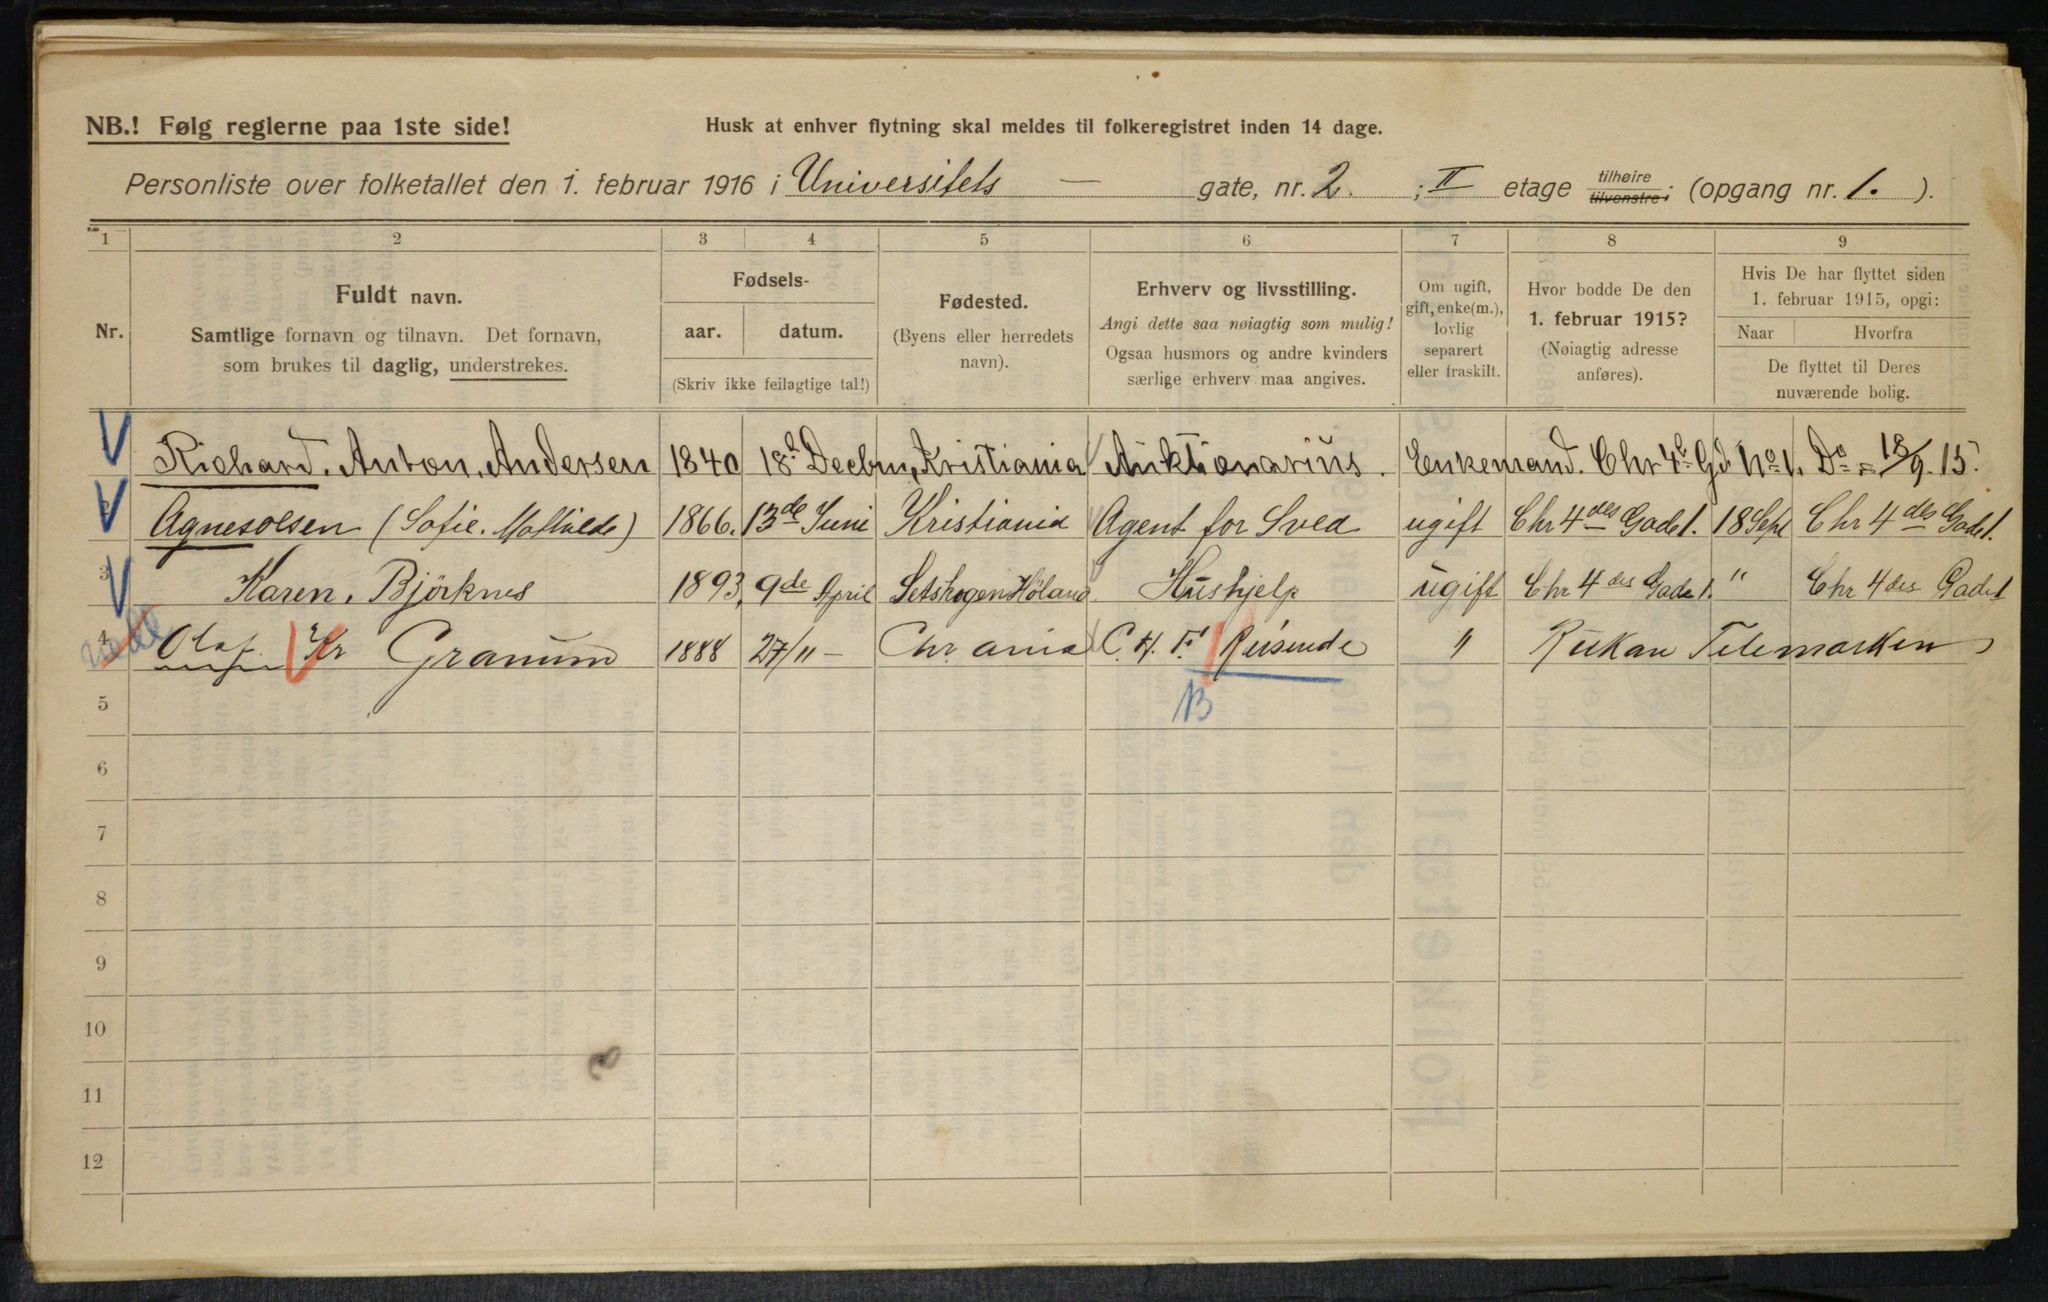 NB.! Følg reglerne paa 1ste side!
Husk at enhver flytning skal meldes til folkeregistret inden 14 dage.
Personliste over folketallet den 1. februar 1916 i Universitets — gate, nr. 2. ; II etage tilhøire tilvenstre; (opgang nr. 1. ).
1 2 3 4 5 6 7 8 9
Nr.
Fuldt navn.
Samtlige fornavn og tilnavn. Det fornavn,
som brukes til daglig, understrekes.
Fødsels-
aar. datum.
(Skriv ikke feilagtige tal!)
Fødested.
(Byens eller herredets
navn).
Erhverv og livsstilling.
Angi dette saa nøiagtig som mulig!
Ogsaa husmors og andre kvinders
særlige erhverv maa angives.
Om ugift,
gift, enke(m.),
lovlig
separert
eller fraskilt.
Hvor bodde De den
1. februar 1915?
(Nøiagtig adresse
anføres).
Hvis De har flyttet siden
1. februar 1915, opgi:
Naar Hvorfra
De flyttet til Deres
nuværende bolig.
Richard. Anton. Andersen 1840 18. Decbm, Kristiania Auktionarius. Enkemand. Chr 4. Gd No 1. Do = 18/9. 15.
2 Agnes Olsen (Sofie. Mathilde) 1866. 13de Juni Kristiania Agent for Sved ugift Chr 4des Gade 1. 18 Sept Chr 4des Gade 1.
3 Karen. Björknes 1893, 9de April Setskogen Höland Hushjelp ugift Chr 4des Gade 1. " Chr 4des Gade 1
4 Olaf Kr Granum 1888 27/11 — Chr ania C. H. F. Reisende " Rukan Telemarken
B
5
6
7
8
9
10
11
12